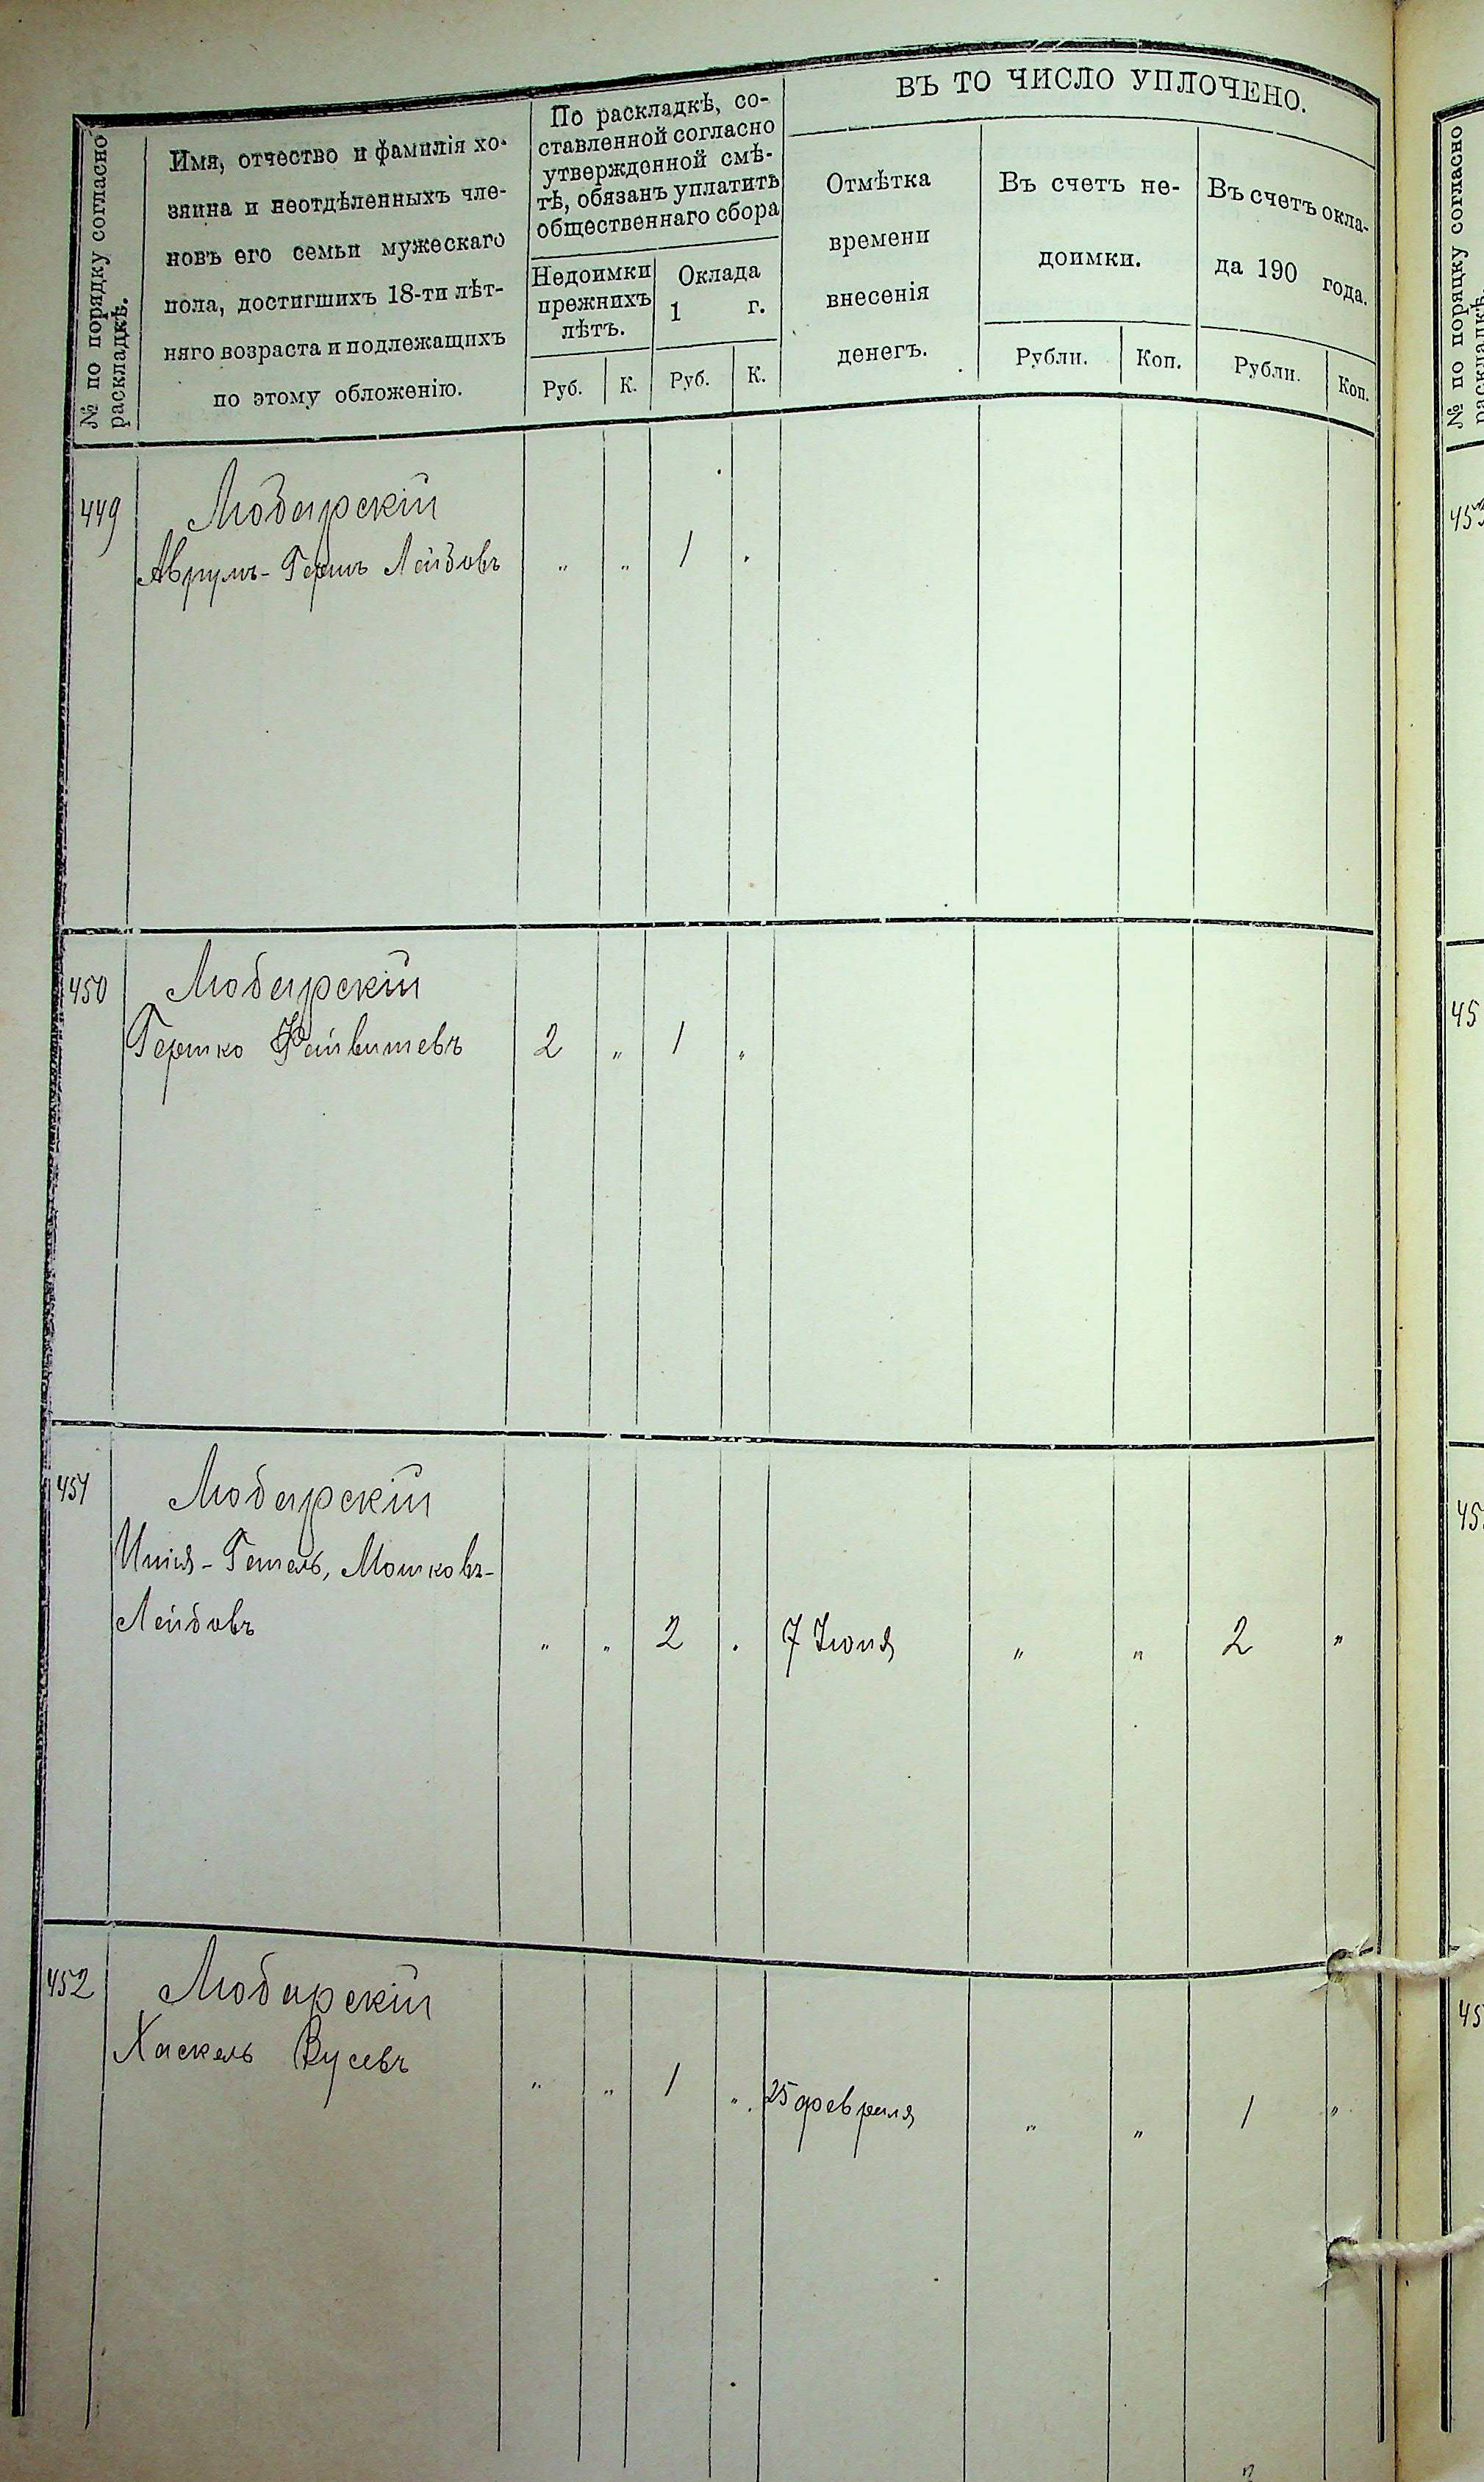 № по порядку согласно
раскладкѣ.
Имя, отчество и фамилія хо-
зяина и неотдѣленныхъ чле-
новъ его семьи мужескаго
пола, достигшихъ 18-ти лѣт-
няго возраста и подлежащихъ
по этому обложенію.
По раскладкѣ, со-
ставленной согласно
утвержденной смѣ-
тѣ, обязанъ уплатить
общественнаго сбора
Недоимки
прежнихъ
лѣтъ.
Оклада
1 г.
Руб. К. Руб. К.
ВЪ ТО ЧИСЛО УПЛОЧЕНО.
Отмѣтка
времени
внесенія
денегъ.
Въ счетъ не-
доимки.
Рубли. Коп.
Въ счетъ окла-
да 190 года.
Рубли. Коп.
449 Любарскій
Аврумъ-Гершъ Лейбовъ „ „ 1 „
450 Любарскій
Гершко Файвишевъ 2 „ 1 „
451 Любарскій
Ицик-Гетель, Мошковъ-
Лейбовъ „ „ 2 „ 7 Іюня „ „ 2 „
452 Любарскій
Хаскель Вусевъ „ „ 1 „ 25 февраля „ „ 1 „
№ по порядку согласно
раскладкѣ.